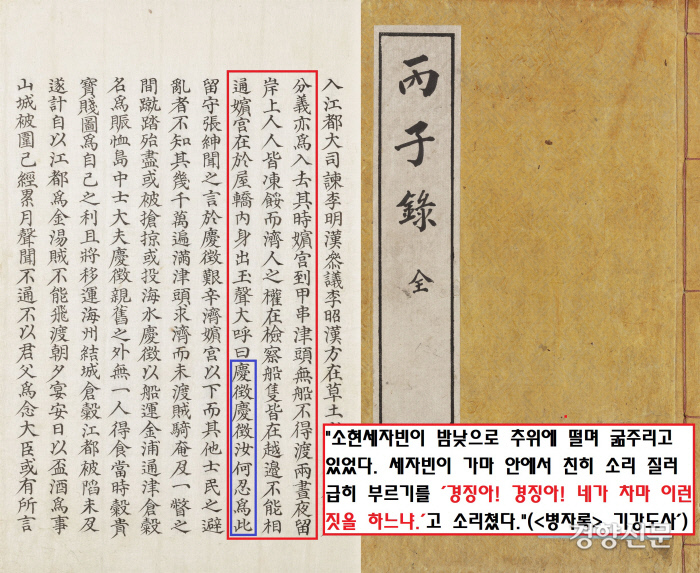 丙子錄 全
入江都大司諫李明漢叅議李昭漢方在草土
分義亦爲入去其時嬪宮到甲串津頭無船不得渡兩晝夜留
岸上人人皆凍餒而濟人之權在檢察船隻皆在越邊不能相
通嬪宮在於屋轎內身出玉聲大呼曰慶徵慶徵汝何忍爲此
留守張紳聞之言於慶徵艱辛濟嬪宮以下而其他士民之避
亂者不知其幾千萬遍滿津頭求濟而未渡賊騎奄及一瞥之
間蹴踏殆盡或被搶掠或投海水慶徵以船運金浦通津倉穀
名爲賑恤島中士大夫慶徵親舊之外無一人得食當時穀貴
寶賤圖爲自己之利且將移運海州結城倉穀江都被陷未及
遂計自以江都爲金湯賊不能飛渡朝夕宴安日以盃酒爲事
山城被圍已經累月聲聞不通不以君父爲念大臣或有所言
"소현세자빈이 밤낮으로 추위에 떨며 굶주리고
있었다. 세자빈이 가마 안에서 친히 소리 질러
급히 부르기를 '경징아! 경징아! 네가 차마 이런
짓을 하느냐.'고 소리쳤다."(<병자록> '기강도사')
경향신문